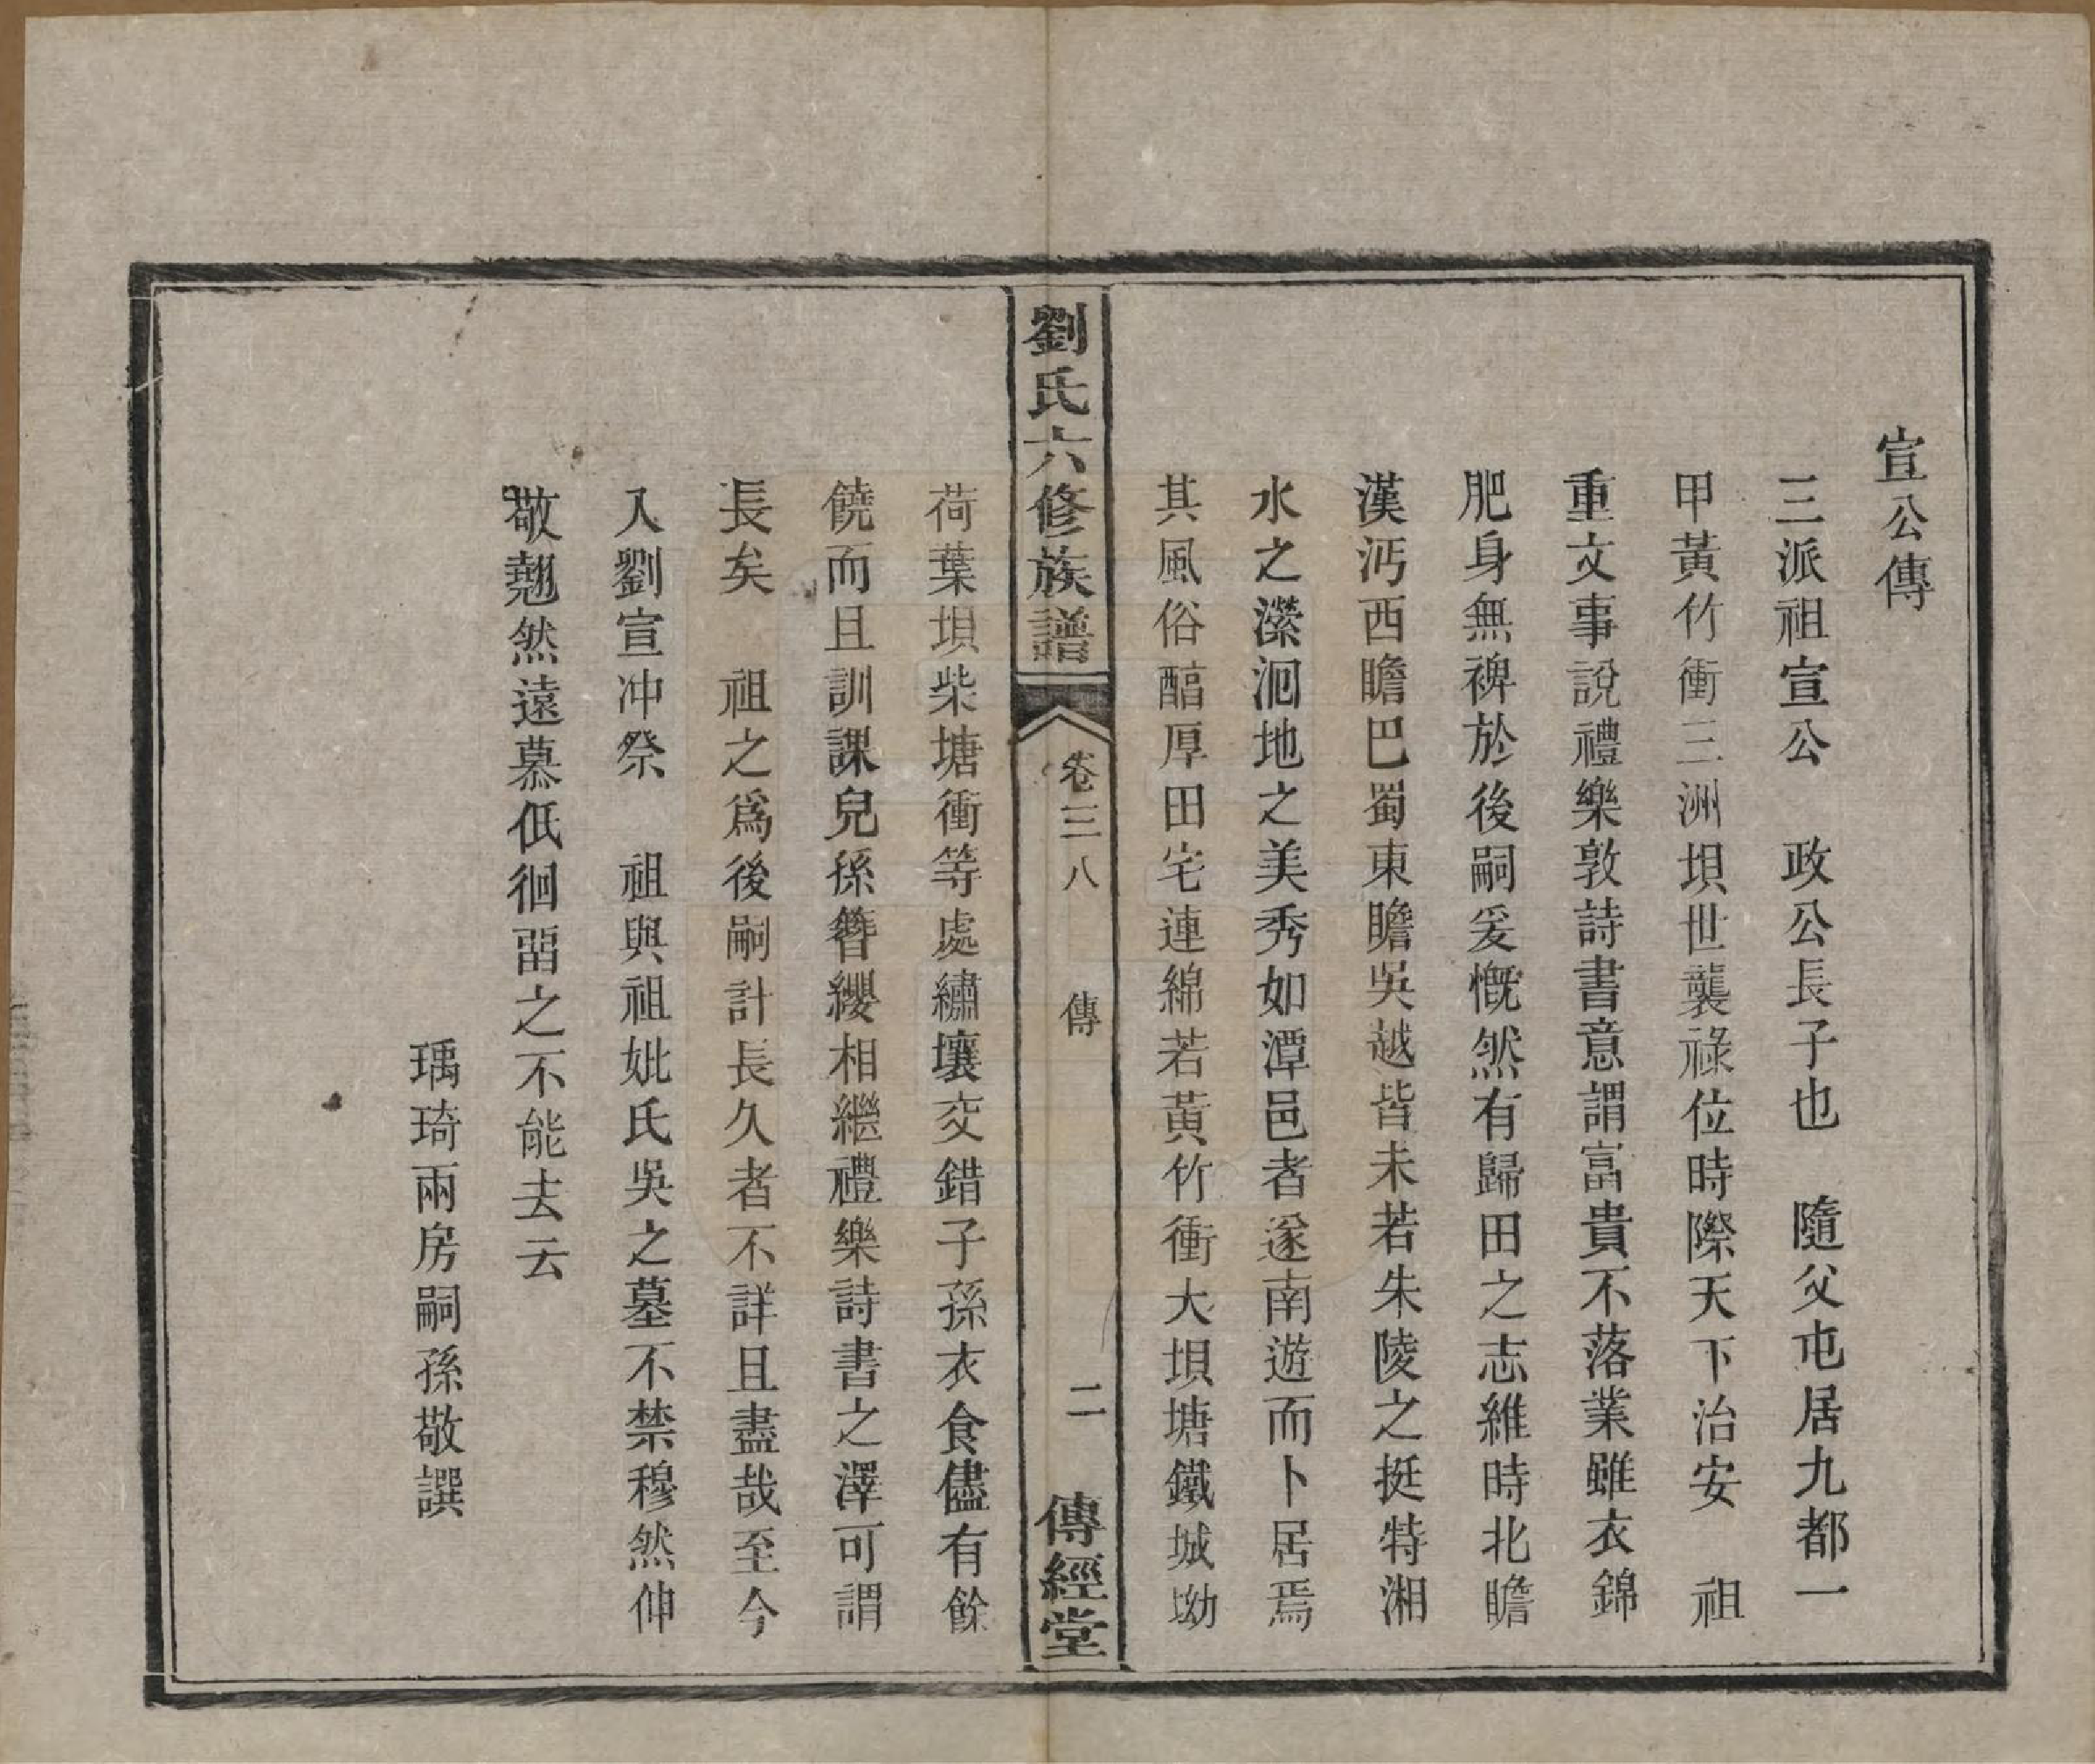 宣公傳
三派祖宣公　政公長子也　隨父屯居九都一
甲黃竹衝三洲垻世襲祿位時際天下治安　祖
重文事說禮樂敦詩書意謂富貴不落業雖衣錦
肥身無裨於後嗣爰慨然有歸田之志維時北瞻
漢沔西瞻巴蜀東瞻吳越皆未若朱陵之挺特湘
水之瀠洄地之美秀如潭邑者遂南遊而卜居焉
其風俗醕厚田宅連綿若黃竹衝大垻塘鐵城坳
劉氏六修族譜
卷三八
傳
二
傳經堂
荷葉垻柴塘衝等處繡壤交錯子孫衣食儘有餘
饒而且訓課兒孫簪纓相繼禮樂詩書之澤可謂
長矣　祖之爲後嗣計長久者不詳且盡哉至今
入劉宣冲祭　祖與祖妣氏吳之墓不禁穆然伸
敬翹然遠慕低徊畱之不能去云
瑀琦兩房嗣孫敬譔